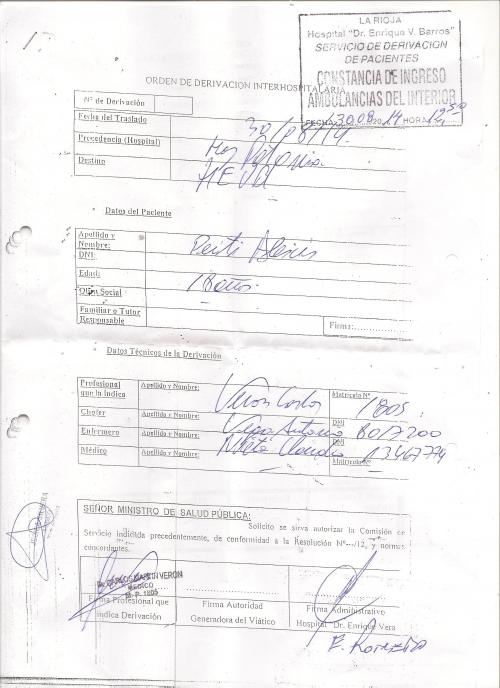 LA RIOJA
Hospital "Dr. Enrique V. Barros"
SERVICIO DE DERIVACION
DE PACIENTES
CONSTANCIA DE INGRESO
AMBULANCIAS DEL INTERIOR
FECHA 30 08 2014 HORA 12 50
ORDEN DE DERIVACION INTERHOSPITALARIA
Nº de Derivación
Fecha del Traslado 30/08/14
Precedencia (Hospital) Hos
Destino HEVB
Datos del Paciente
Apellido y
Nombre: Alexis
DNI:
Edad: 18 años
Obra Social
Familiar o Tutor
Responsable Firma:
Datos Técnicos de la Derivación
Profesional
que la Indico Apellido y Nombre: Veron Carlos Matricula Nº 1805
Chofer Apellido y Nombre: Vega Antonio DNI 8017200
Enfermero Apellido y Nombre: Claudio DNI 13467774
Médico Apellido y Nombre: Matricula Nº
SEÑOR MINISTRO DE SALUD PÚBLICA:
Solicito se sirva autorizar la Comisión de
Servicio indicida precedentemente, de conformidad a la Resolución Nº---/12, y normas
concordantes.
Dr. CARLOS MARTIN VERON
MEDICO
M. P. 1805
Firma Profesional que
indica Derivación
Firma Autoridad
Generadora del Viático
Firma Administrativo
Hospital "Dr. Enrique Vera